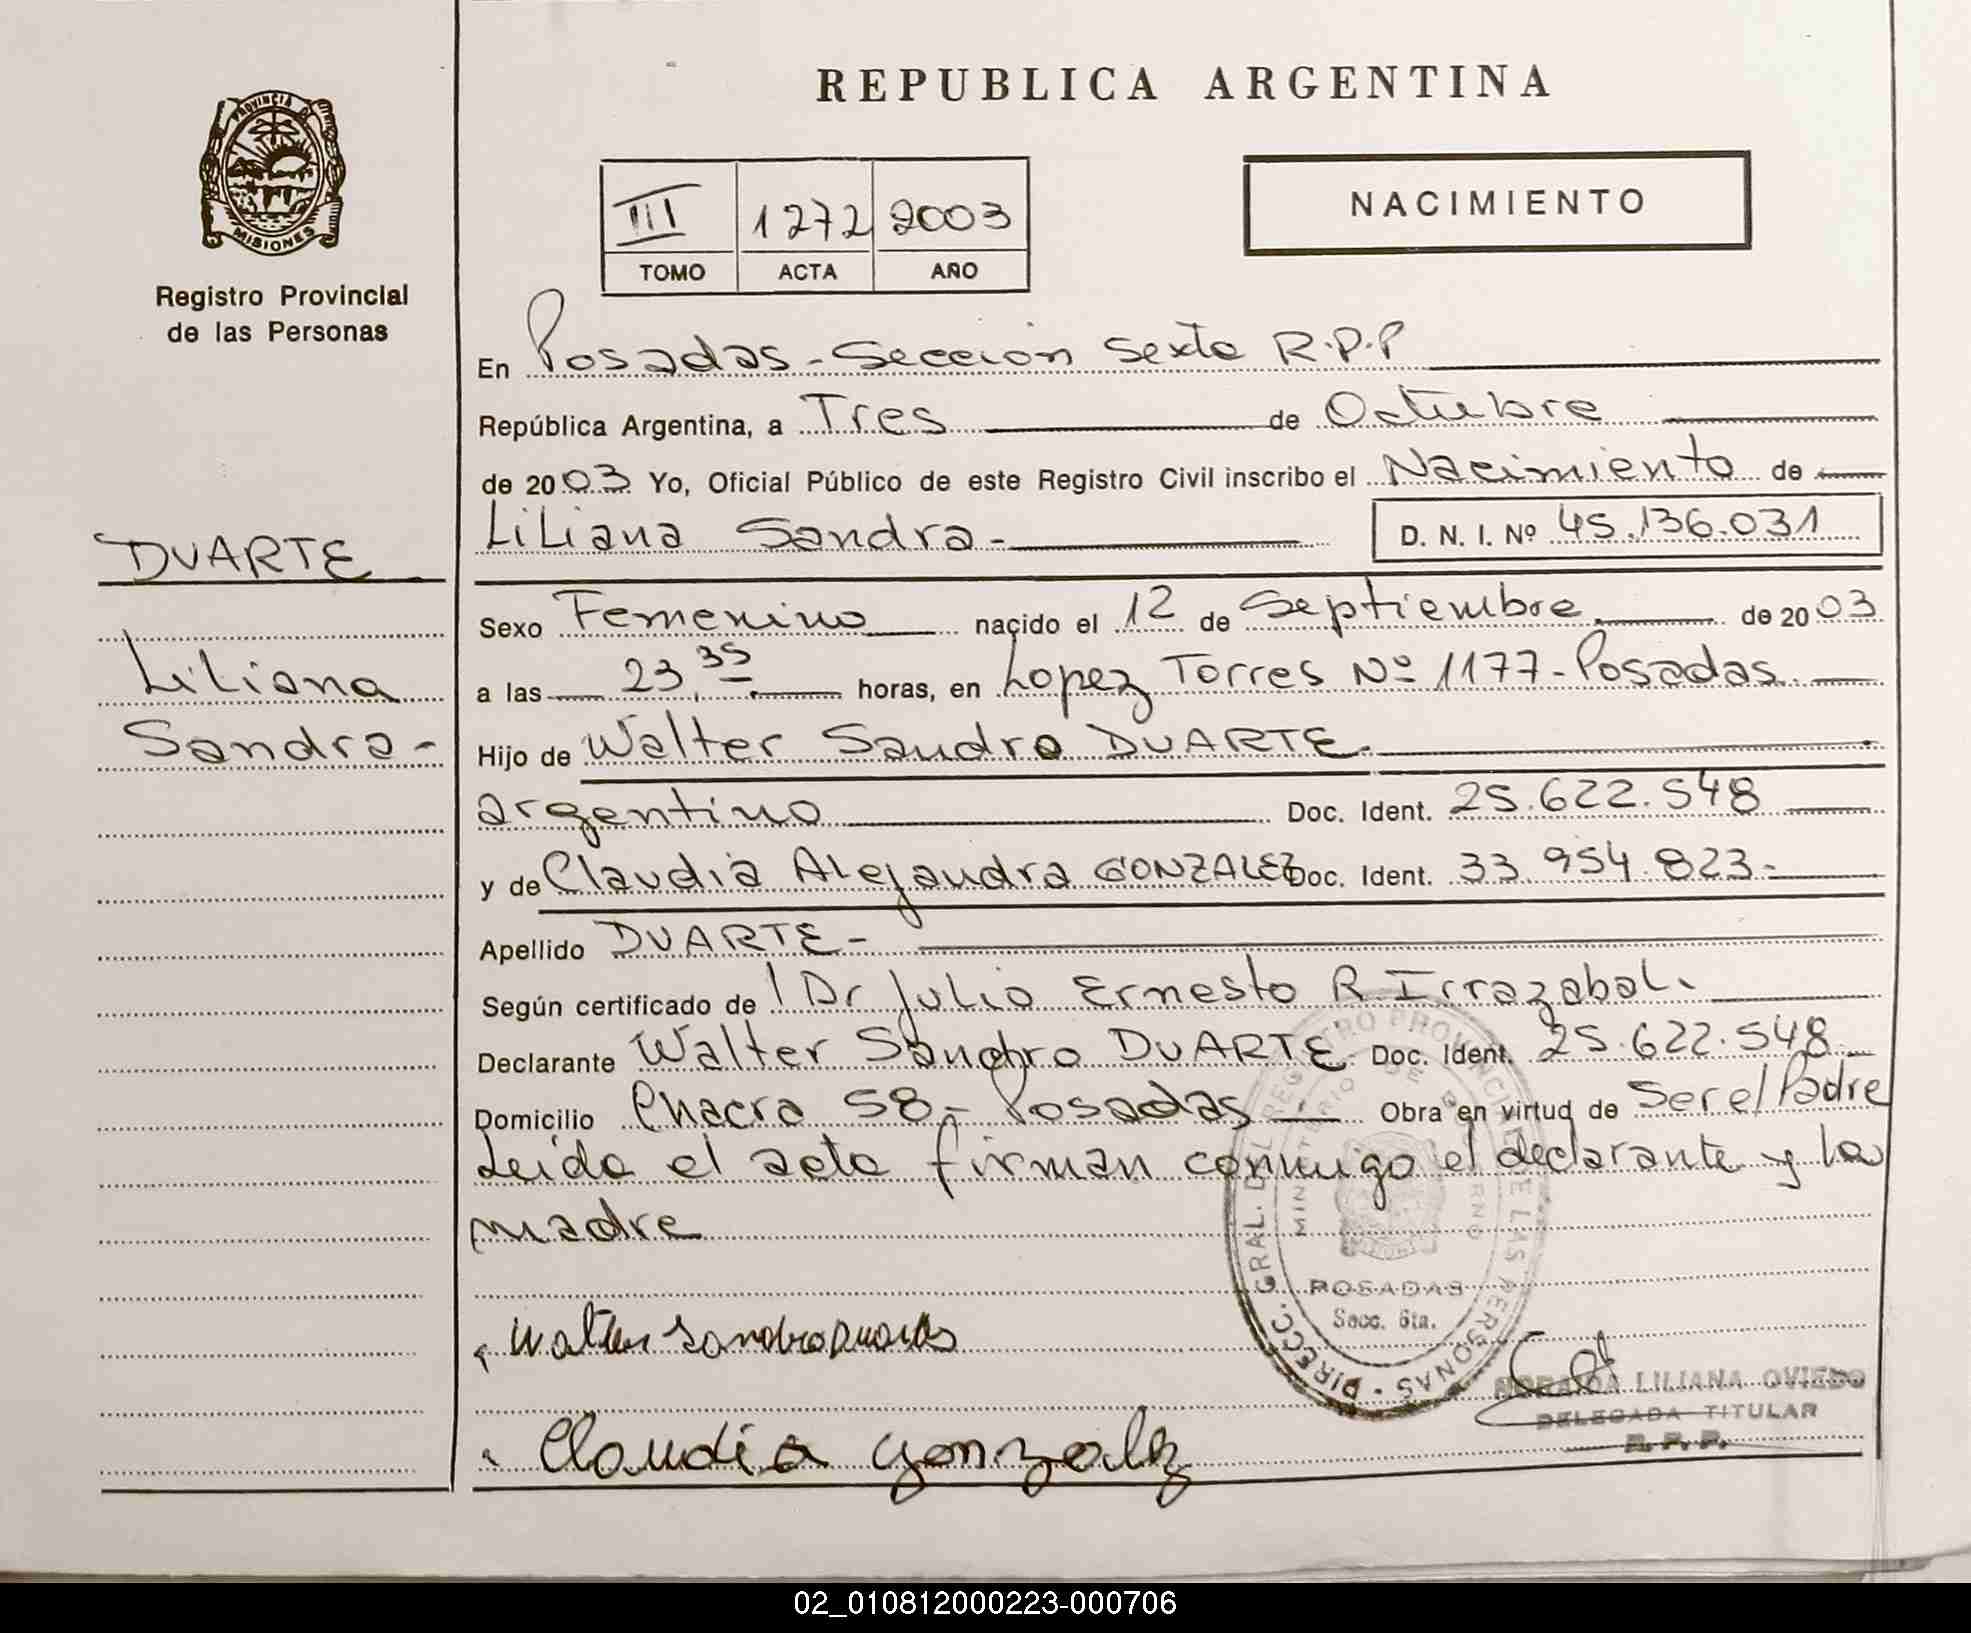 REPUBLICA ARGENTINA
PROVINCIA DE
MISIONES
Registro Provincial
de las Personas
III 1272 2003
TOMO ACTA AÑO
NACIMIENTO
En Posadas - Sección Sexta R.P.P
República Argentina, a Tres de Octubre
de 2003 Yo, Oficial Público de este Registro Civil inscribo el Nacimiento de
Liliana Sandra - D. N. I. Nº 45.136.031
DUARTE
Liliana
Sandra -
Sexo Femenino nacido el 12 de Septiembre de 2003
a las 23,35 horas, en Lopez Torres Nº 1177 - Posadas
Hijo de Walter Sandro DUARTE
argentino Doc. Ident. 25.622.548
y de Claudia Alejandra GONZALEZ Doc. Ident. 33.954.823.-
Apellido DUARTE -
Según certificado de Dr Julio Ernesto R. Irrazabal.
Declarante Walter Sandro DUARTE Doc. Ident. 25.622.548
Domicilio Chacra 58 - Posadas Obra en virtud de Ser el Padre
Leida el acta firman conmigo el declarante y la
madre
DIRECC. GRAL. DEL REGISTRO PROVINCIAL DE LAS PERSONAS
MINISTERIO DE GOBIERNO
POSADAS
Secc. 6ta.
Walter Sandro Duarte
LILIANA OVIEDO
DELEGADA TITULAR
R. P. P.
Claudia Gonzalez
02_010812000223-000706